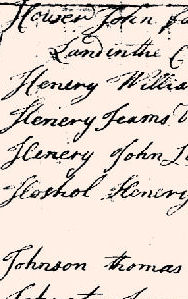 Hower John
Land in the
Henery Willia
Henery Jeams
Henery John L
Hoshol Henery
Johnson thomas